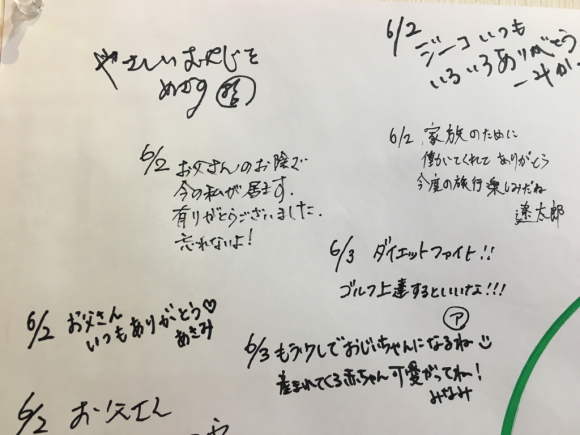 やさしいおやじを
めざす
6/2
ジーコいつも
いろいろありがとう
6/2 家族のために
働いてくれてありがとう
今度の旅行楽しみだね
遼太郎
6/2 お父さんのお陰で
今の私が居ます.
有りがとうございました.
忘れないよ!
6/3 ダイエットファイト!!
ゴルフ上達するといいな!!!
ア
6/2 お父さん
いつもありがとう♡
あさみ
6/3 もう少しでおじいちゃんになるね
産まれてくる赤ちゃん可愛がってね!
みなみ
6/2 お父さん